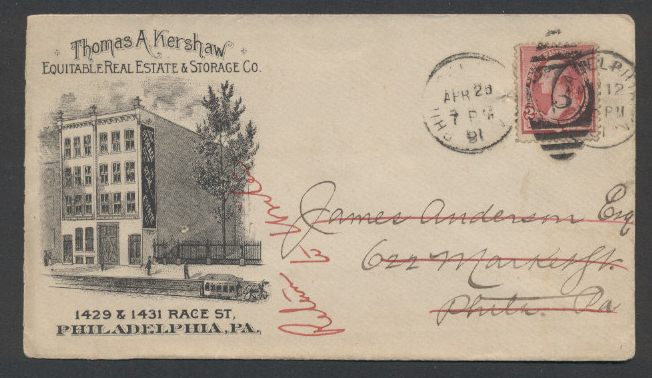 Thomas A. Kershaw
EQUITABLE REAL ESTATE & STORAGE CO.
1429 & 1431 RACE ST,
PHILADELPHIA, PA.
PHIL
APR 28
7 PM
91
2
James Anderson Esq
622 Market St.
Phila. Pa
Return to